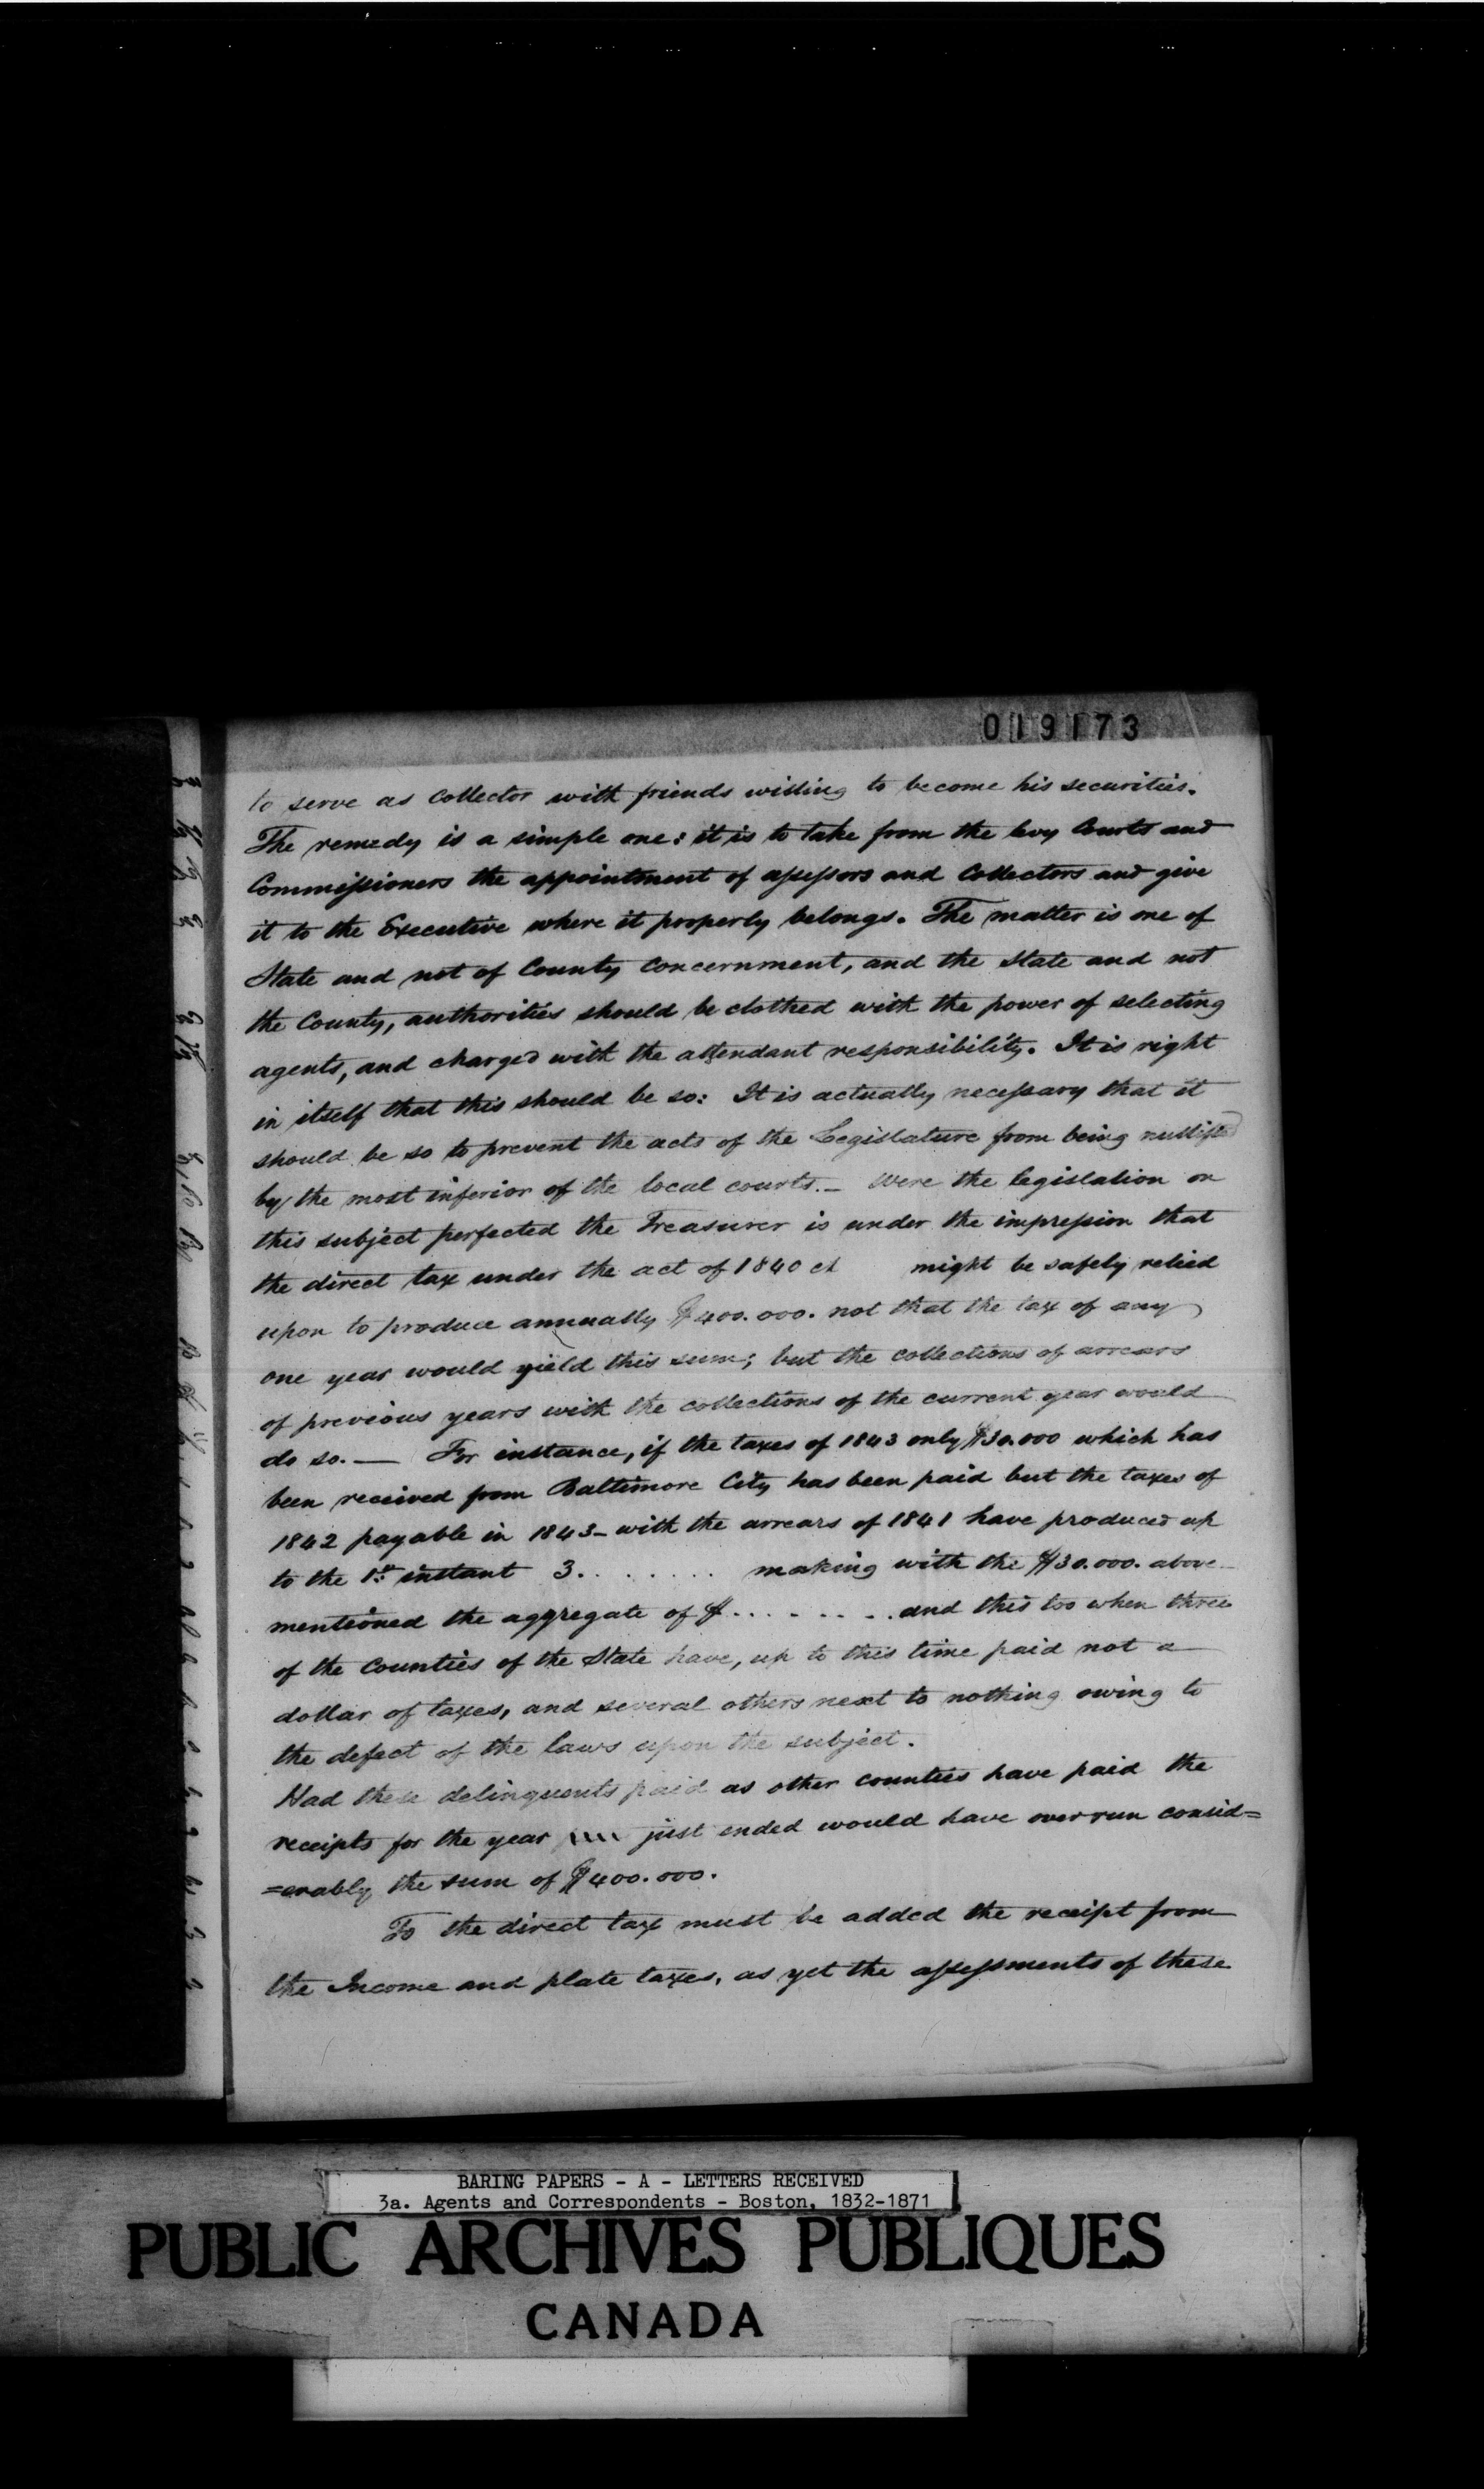 019173
to serve as Collector with friends willing to become his securities.
The remedy is a simple one: it is to take from the levy Courts and
Commissioners the appointment of assessors and Collectors and give
it to the Executive where it properly belongs. The matter is one of
State and not of County concernment, and the State and not
the County, authorities should be clothed with the power of selecting
agents, and charged with the attendant responsibility. It is right
in itself that this should be so: It is actually necessary that it
should be so to prevent the acts of the Legislature from being nullified
by the most inferior of the local courts. – Were the legislation on
this subject perfected the Treasurer is under the impression that
the direct tax under the act of 1840 ch might be safely relied
upon to produce annually $400.000. not that the tax of any
one year would yield this sum; but the collections of arrears
of previous years with the collections of the current year would
do so. — For instance, if the taxes of 1843 only $30.000 which has
been received from Baltimore City has been paid but the taxes of
1842 payable in 1843 – with the arrears of 1841 have produced up
to the 1st instant 3. . . . . . . . making with the $30.000. above
mentioned the aggregate of $ . . . . . . . . and this too when three
of the Counties of the State have, up to this time paid not a
dollar of taxes, and several others next to nothing owing to
the defect of the laws upon the subject.
Had these delinquents paid as other counties have paid the
receipts for the year just ended would have overrun consid=
=erably the sum of $400.000.
To the direct tax must be added the receipt from
the Income and plate taxes, as yet the assessments of these
BARING PAPERS - A - LETTERS RECEIVED
3a. Agents and Correspondents - Boston, 1832-1871
PUBLIC ARCHIVES PUBLIQUES
CANADA